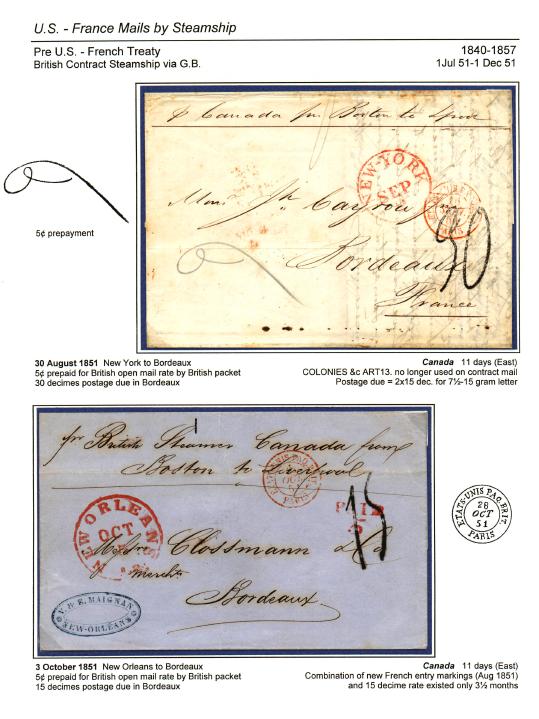 U.S. - France Mails by Steamship
Pre U.S. - French Treaty
1840-1857
British Contract Steamship via G.B.
1Jul 51-1 Dec 51
p Canada per Boston to Lpool
NEW-YORK
SEP
5¢ prepayment
Bordeaux
30
France
30 August 1851 New York to Bordeaux
5¢ prepaid for British open mail rate by British packet
30 decimes postage due in Bordeaux
Canada 11 days (East)
COLONIES &c ART13. no longer used on contract mail
Postage due = 2x15 dec. for 7½-15 gram letter
pr British Steamer Canada from
Boston to Liverpool
ETATS-UNIS PAQ. BRIT.
OCT
51
PARIS
PAID
15
NEW ORLEANS
OCT
Clossmann
Bordeaux
V. & E. MAIGNAN
NEW-ORLEANS
ETATS-UNIS PAQ. BRIT.
28
OCT
51
PARIS
3 October 1851 New Orleans to Bordeaux
5¢ prepaid for British open mail rate by British packet
15 decimes postage due in Bordeaux
Canada 11 days (East)
Combination of new French entry markings (Aug 1851)
and 15 decime rate existed only 3½ months